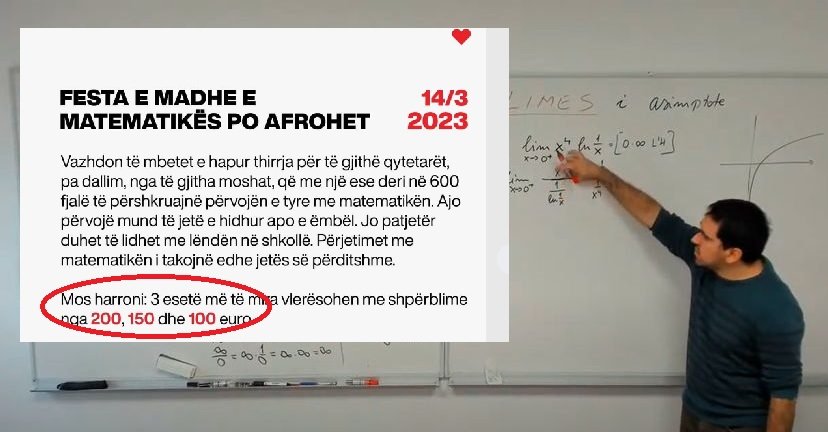 FESTA E MADHE E
MATEMATIKËS PO AFROHET
14/3
2023
Vazhdon të mbetet e hapur thirrja për të gjithë qytetarët,
pa dallim, nga të gjitha moshat, që me një ese deri në 600
fjalë të përshkruajnë përvojën e tyre me matematikën. Ajo
përvojë mund të jetë e hidhur apo e ëmbël. Jo patjetër
duhet të lidhet me lëndën në shkollë. Përjetimet me
matematikën i takojnë edhe jetës së përditshme.
Mos harroni: 3 esetë më të mira vlerësohen me shpërblime
nga 200, 150 dhe 100 euro
LIMES i asimptote
lim x⁴ ln 1/x = [0·∞ L'H]
x→0⁺
lim
x→0⁺
1/ln 1/x
1/x⁴
∞/0 = ∞·1/0 = ∞·∞ = ∞